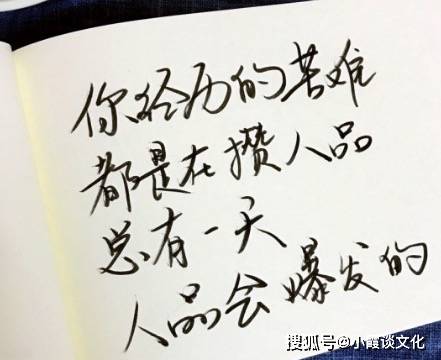 你经历的苦难
都是在攒人品
总有一天
人品会爆发的
搜狐号@小霞谈文化